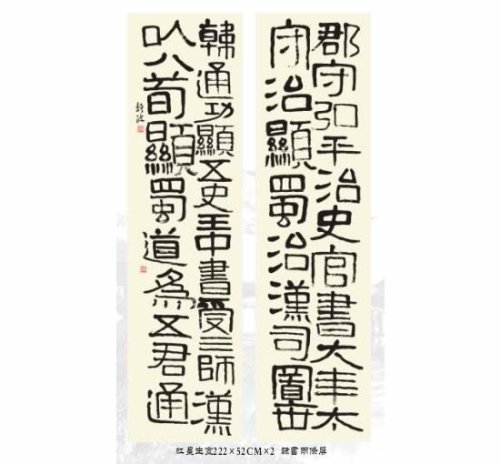 郡守弘平治史官書大年太
守治顯蜀治漢司置世
韓通功顯五史中書受三師漢
以八荀顯蜀道為五君通
红星生宣222×52CM×2 隸書兩條屏